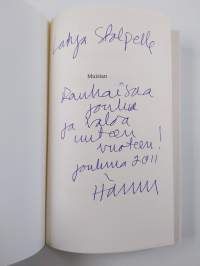 Stolpelle
Muistan
Rauhaisaa
joulua
ja valoa
uuteen
vuoteen!
jouluna 2011
Hannu